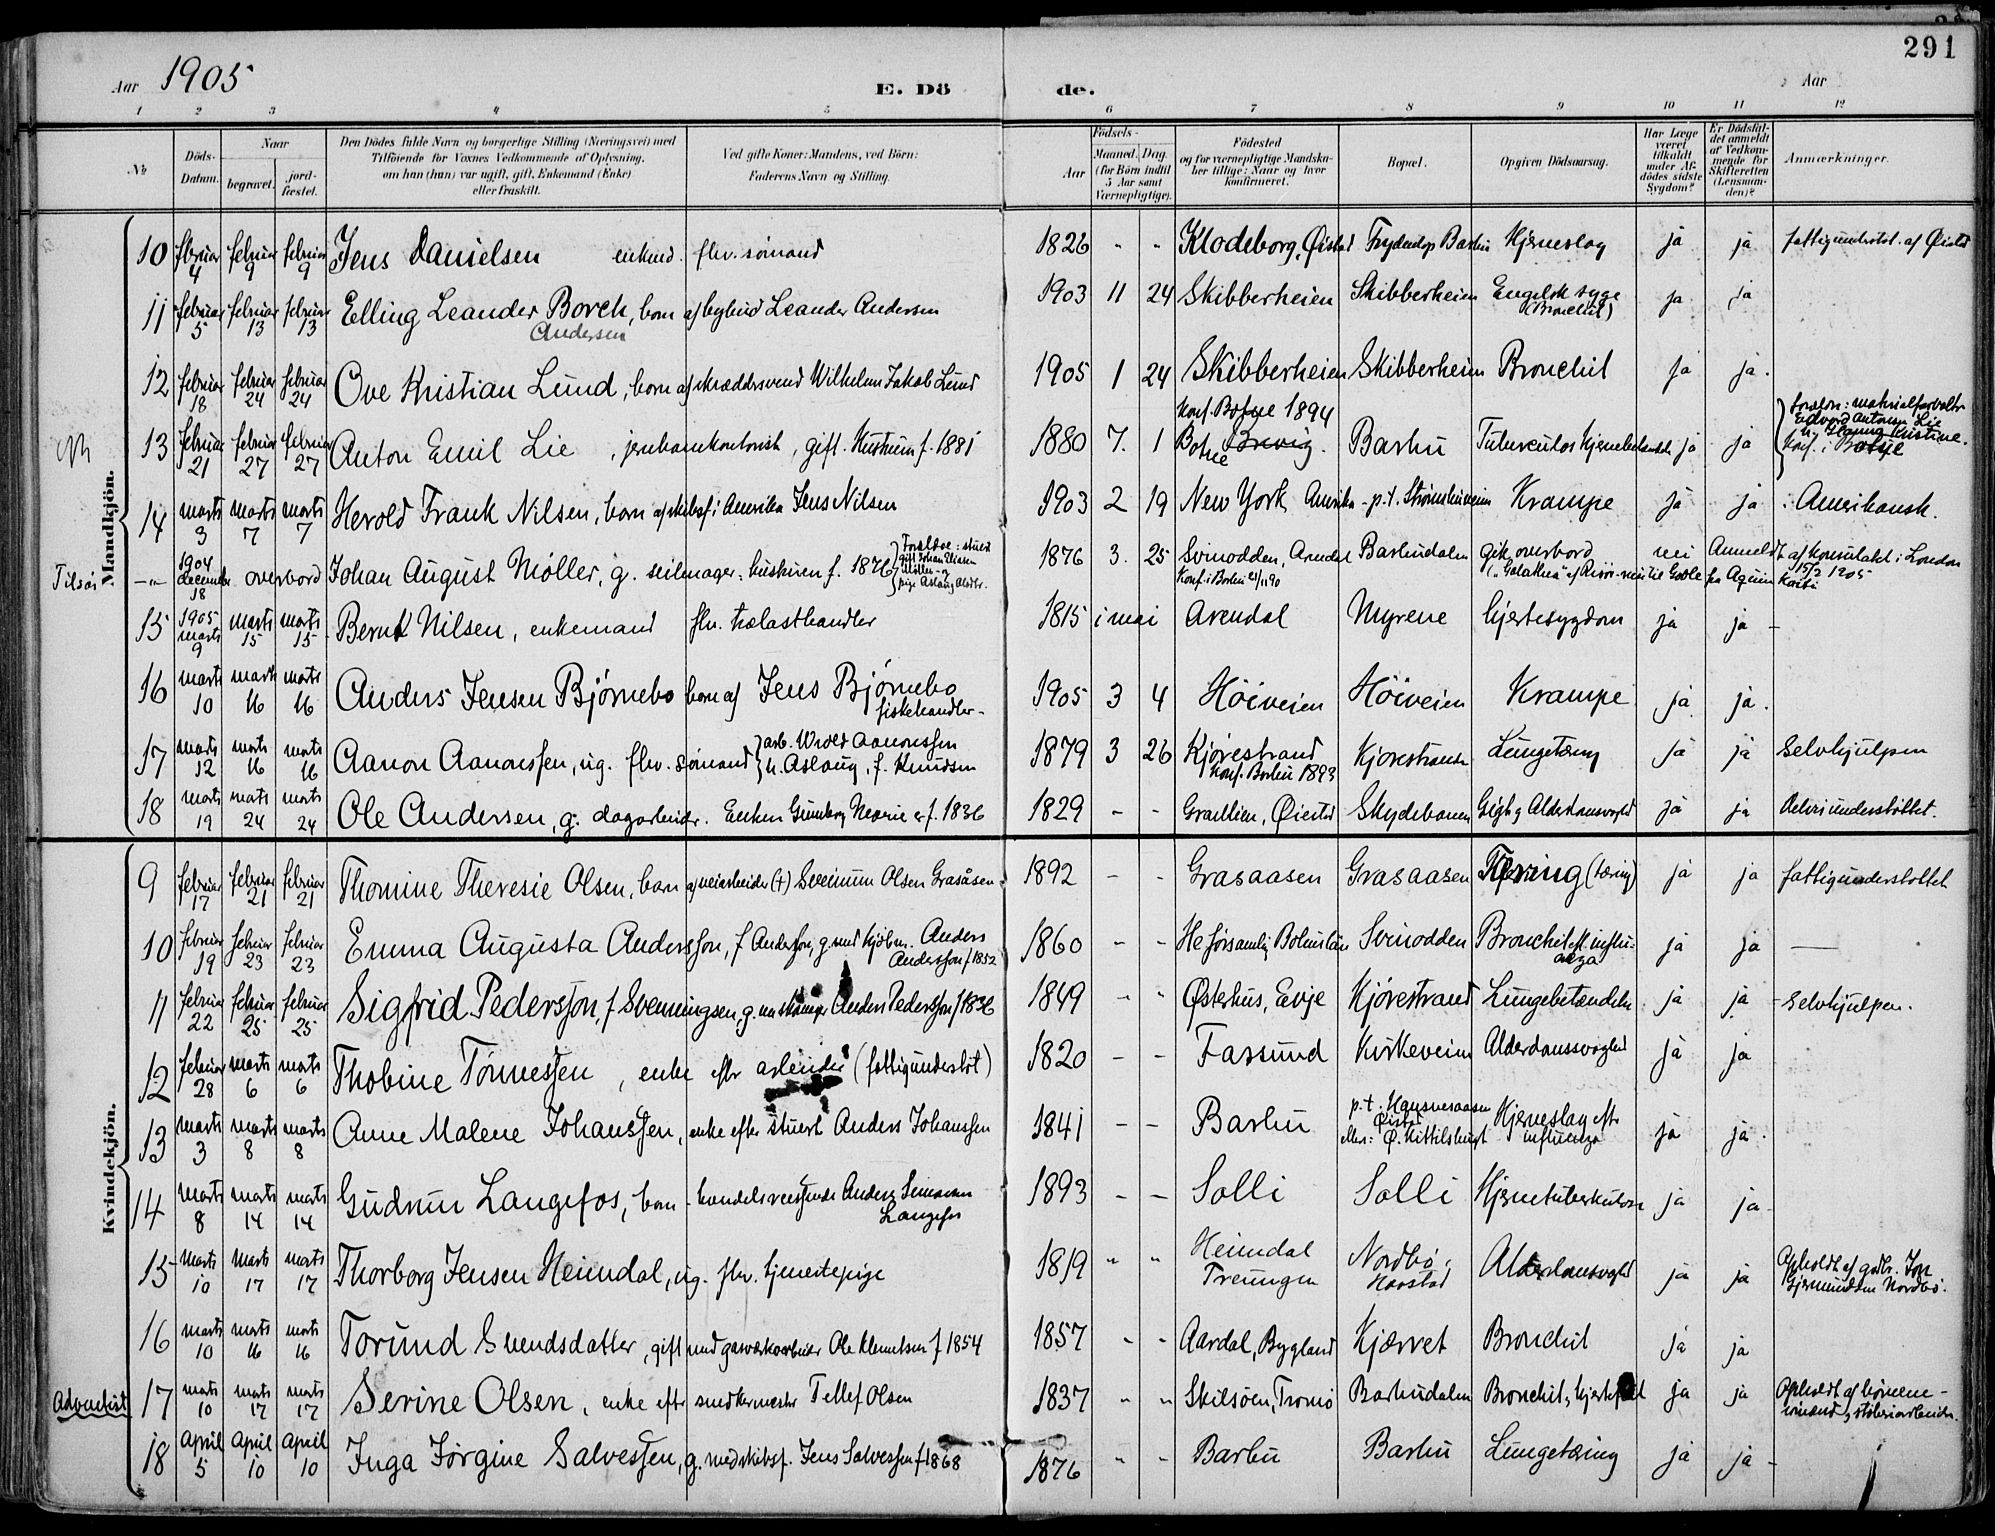 291
Aar 1905 E. Dö de. Aar
1 2 3 4 5 6 7 8 9 10 11 12
No
Döds-Datum.
Naar
begravet.
jord-fæstet.
Den Dödes fulde Navn og borgerlige Stilling (Næringsvei) med
Tilföiende for Voxnes Vedkommende af Oplysning,
om han (hun) var ugift, gift, Enkemand (Enke)
eller fraskilt.
Ved gifte Koner: Mandens, ved Börn:
Faderens Navn og Stilling.
Födsels-
Aar
Maaned. Dag.
(for Börn indtil
5 Aar samt
Værnepligtige).
Födested
og for værnepligtige Mandska-
ber tillige: Naar og hvor
konfirmeret.
Bopæl.
Opgiven Dödsaarsag.
Har Læge
været
tilkaldt
under Af-
dödes sidste
Sygdom?
Er Dödsfal-
det anmeldt
af Vedkom-
mende for
Skifteretten
(Lensman-
den)?
Anmærkninger.
Mandkjön.
10 februar 4 februar 9 februar 9 Jens Danielsen enkmd. fhv. sømand 1826 - - Klodeborg, Øiestad Barbu Hjerneslag ja ja fattigunderstøt. af Øiestad
11 februar 5 februar 13 februar 13 Elling Leander Borch, barn af Leander Andersen 1903 11 24 Skibberheien Skibberheien Engelsk syge (Bronchit) ja ja
Andersen
12 februar 18 februar 24 februar 24 Ove Kristian Lund, barn af skræddersvend Wilhelm Jakob Lund 1905 1 24 Skibberheien Skibberheien Bronchit ja ja.
13 februar 21 februar 27 februar 27 Anton Emil Lie, jernbanekontorist, gift. Hustruen f. 1881 1880 7. 1 Konf. Botne 1894 Botne Brevig. Barbu Tuberculos Hjernebetændelse ja ja Forældre: materialforvalter Edvard Antonsen Lie Kristine. Konf. i Botne
14 marts 3 marts 7 marts 7 Herold Frank Nilsen, barn af skibsf. i Amerika Jens Nilsen 1903 2 19 New York, Amerika - p.t. Strømsbuveien Krampe ja ja Amerikansk.
Tilføi -"- 1904 december 18 overbord Johan August Møller, g. seilmager, hustruen f. 1876 1876 3. 25 Svinodden, Arendal Barbudalen gik overbord nei Anmeldt af Konsulatet i London 15/2 1905
Konf. i Barbu
15 1905 marts 9 marts 15 marts 15 Bernt Nilsen, enkemand fhv. trælasthandler 1815 i mai Arendal Myrene hjertesygdom ja ja -
16 marts 10 marts 16 marts 16 Anders Jensen Bjørnebo barn af Jens Bjørnebo fiskehandler - 1905 3 4 Höiveien Höiveien Krampe ja ja.
17 marts 12 marts 16 marts 16 Aanon Aanonssen, ug. fhv. sømand arb. Aanonssen u. Aslaug, f. Knudsen 1879 3 26 Kjørestrand Konf. Barbu 1893 Kjørestrand Lungetæring ja ja selvhjulpen
18 marts 19 marts 24 marts 24 Ole Andersen, g. dagarbeider. Enken Gunborg Marie er f. 1836 1829 - - Øiestad Skydebanen Gigt og Alderdomsvaghed ja ja Delvis understøttet.
Kvindekjön.
9 februar 17 februar 21 februar 21 Thomine Theresie Olsen, barn af veiarbeider (†) Svennum Olsen Grasåsen 1892 - - Grasaasen Grasaasen Tæring (tæring) ja ja fattigunderstøttet
10 februar 19 februar 23 februar 23 Emma Augusta Andersson, f. Andersson, g. med Anders Andersson f 1852 1860 - - Bohuslän Svinodden Bronchit eft. influenza ja ja
11 februar 22 februar 25 februar 25 Sigfrid Pedersson, f. Svenningsen, g. m Anders Pedersson f 1836 1849 - - Østerhus, Evje Kjørestrand Lungebetændelse ja ja - selvhjulpen.
12 februar 28 marts 6 marts 6 Thobine Tønnessen, enke efter arbeider (fattigunderstøt) 1820 - - Farsund Kirkeveien Alderdomssvaghed ja ja
13 marts 3 marts 8 marts 8 Anne Malene Johanssen, enke efter stuert Anders Johanssen 1841 - - Barbu p.t. Øiestad ellers: Ø. Kittilsbugt Hjerneslag eft. influenza ja ja.
14 marts 8 marts 14 marts 14 Gudrun Langefos, barn - handelsreisende Anders Simonsen Langefos 1893 - - Solli Solli Hjernetuberkulose ja ja -
15 marts 10 marts 17 marts 17 Thorborg Jensen Heimdal, ug. fhv. tjenestepige 1819 " " Heimdal Treungen Nordbø i Alderdomsvaghed ja ja Opholdt af gdbr. Jon Gjermundsen Nordbø.
16 marts 10 marts 16 marts 16 Torund Svendsdatter, gift med gasværksarbeider Ole Klemetsen f 1854 1857 - - Aardal, Bygland Kjærret Bronchit ja ja
Adventist 17 marts 10 marts 17 marts 17 Serine Olsen, enke efter snedkermester Tellef Olsen 1837 " " Skilsøen, Tromø Barbudalen Bronchit, hjertefeil ja ja Opholdt af børnene -
18 april 5 april 10 april 10 Inga Jørgine Salvessen, g. med skibsf. Jens Salvessen f 1868 1876 " " Barbu Barbu Lungetæring ja ja -